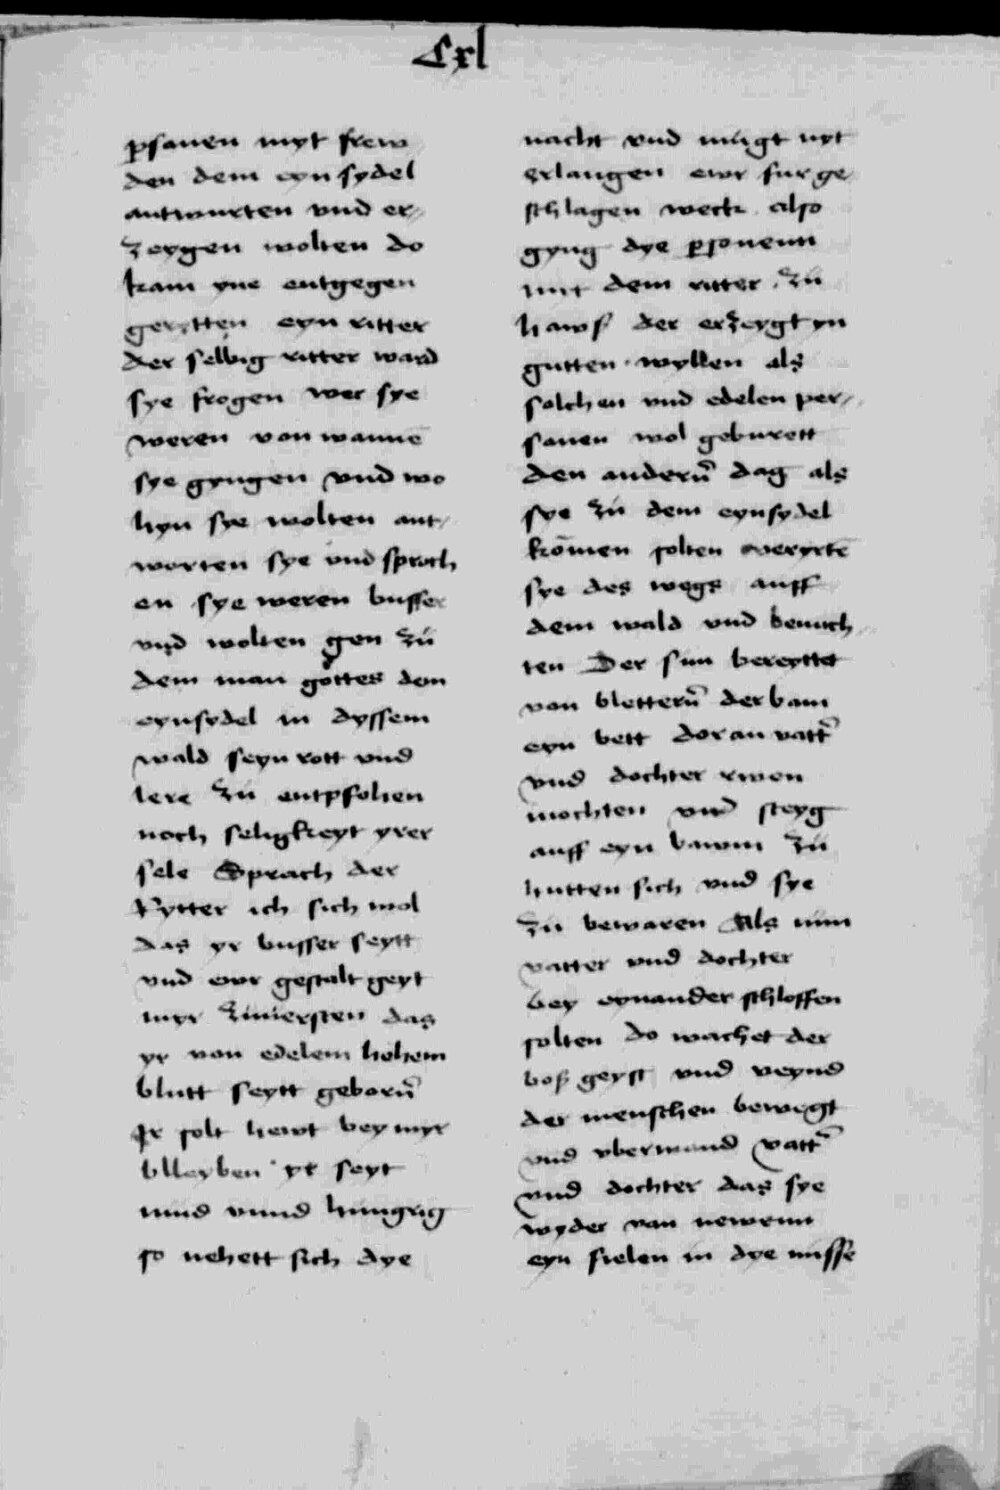 Cxl
personen myt frew
den dem eynsydel
antwurten vnd er-
zeygen wolten do
kam yne entgegen
gerytten eyn ritter
der selbig ritter ward
sye frogen wer sye
weren von wanne
sye gyngen vnd wo
hyn sye wolten ant-
worten sye vnd sproch
en sye weren busser
vnd wolten gen zü
dem man gottes dem
eynsydel in dyssem
wald seyn rott vnd
lere zü entpfohen
noch seligkeyt yrer
sele Sprach der
Rytter ich sich wol
das yr busser seytt
vnd ewr gestalt geyt
myr zuuersten das
yr von edelem hohem
blutt seytt geborn
Ir solt hewt bey myr
blleyben yr seyt
mud vnnd hungrig
so nehett sich dye
nacht vnd mügt nyt
erlangen ewr fur ge-
schlagen weck also
gyng dye personenn
mit dem ritter zü
hawß der erzeygt yn
gutten wyllen als
solchen vnd edelen per-
sonen wol geburett
den andern dag als
sye zü dem eynsydel
kömen solten veryrte
sye des wegs auff
dem wald vnd benach-
ten Der sun bereyttet
von blettern der bam
eyn bett dor an vatter
vnd dochter rwen
mochten vnd steyg
auff eyn bawm zü
hutten sich vnd sye
zü bewaren Als nün
vatter vnd dochter
bey eynander schloffen
solten do wachet der
boß geyst vnd veynd
der menschen bewegt
vnd vberwand vatter
vnd dochter das sye
wyder von newenn
eyn fielen in dye misse